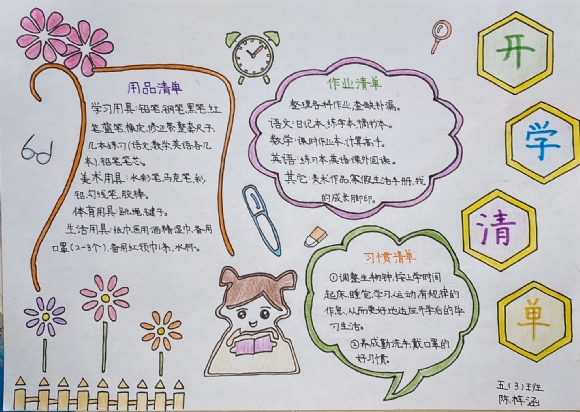 开
学
清
单
用品清单
学习用具:铅笔,钢笔,黑笔,红
笔,蓝笔,橡皮,修正带,整套尺子,
几本练习(语文,数学,英语各几
本),铅笔笔芯。
美术用具:水彩笔,马克笔,彩
铅,勾线笔,胶棒。
体育用具:跳绳,毽子。
生活用具:纸巾,医用酒精湿巾,备用
口罩(2-3个),备用红领巾1条,水杯。
作业清单
整理各种作业,查缺补漏。
语文:日记本,练字本,摘抄本。
数学:课时作业本,计算高手。
英语:练习本,英语课外阅读。
其它:美术作品,寒假生活手册,我
的成长脚印。
习惯清单
①调整生物钟,按上学时间
起床,睡觉,学习,运动,有规律的
作息,从而更好地适应开学后的学
习生活。
②养成勤洗手,戴口罩的
好习惯。
五(3)班
陈梓涵